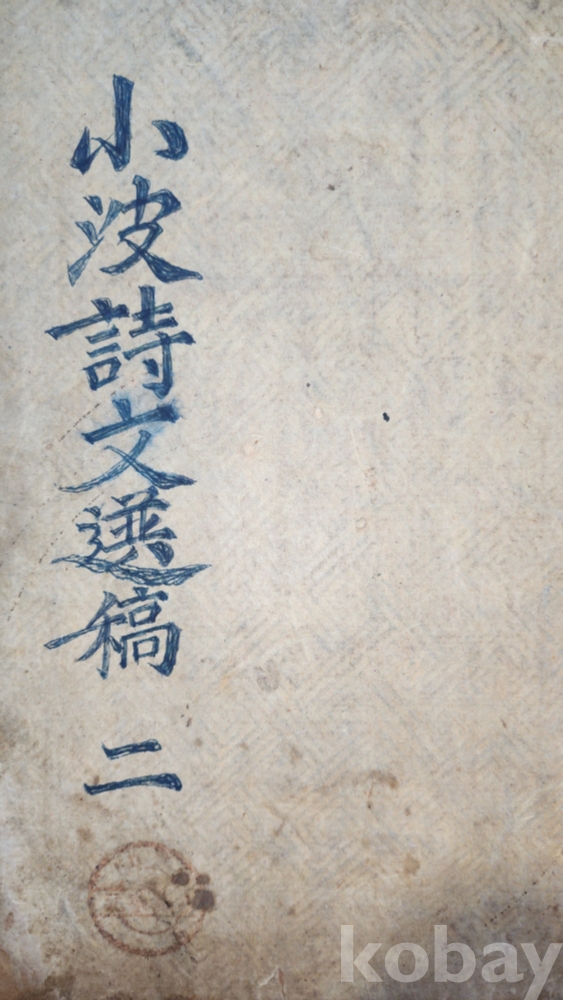 小波詩文選稿 二
kobay